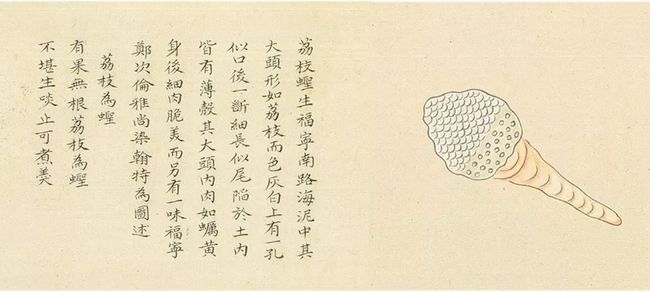 荔枝蟶生福寧南路海泥中其
大頭形如荔枝而色灰白上有一孔
似口後一斷細長似尾陷於土内
皆有薄殼其大頭内肉如蠣黄
身後細肉脆美而另有一味福寧
鄭次倫雅尚染翰特為圖述
荔枝為蟶
有果無根荔枝為蟶
不堪生啖止可煮羹